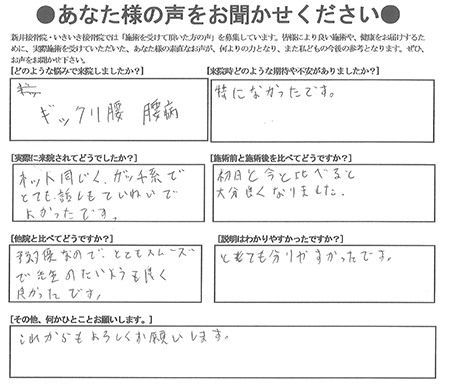 ●あなた様の声をお聞かせください●
新井接骨院・いきいき接骨院では「施術を受けて頂いた方の声」を募集しています。皆様により良い施術や、健康をお届けするた
めに、実際施術を受けていただいた、あなた様の素直なお声が、何よりの力となり、また私どもの今後の参考となります。ぜひ、
お声をお聞かせ下さい。
[どのような悩みで来院しましたか?]
ギックリ腰 腰痛
[来院時どのような期待や不安がありましたか?]
特になかったです。
[実際に来院されてどうでしたか?]
ネット同じく、ガッチ系で
とても話しもていねいで
よかったです。
[施術前と施術後を比べてどうですか?]
初日と今と比べると
大分良くなりました。
[他院と比べてどうですか?]
予約優なので、とてもスムーズ
で先生のたいおうも良く
良かったです。
[説明はわかりやすかったですか?]
とても分りやすかったです。
[その他、何かひとことお願いします。]
これからもよろしくお願いします。